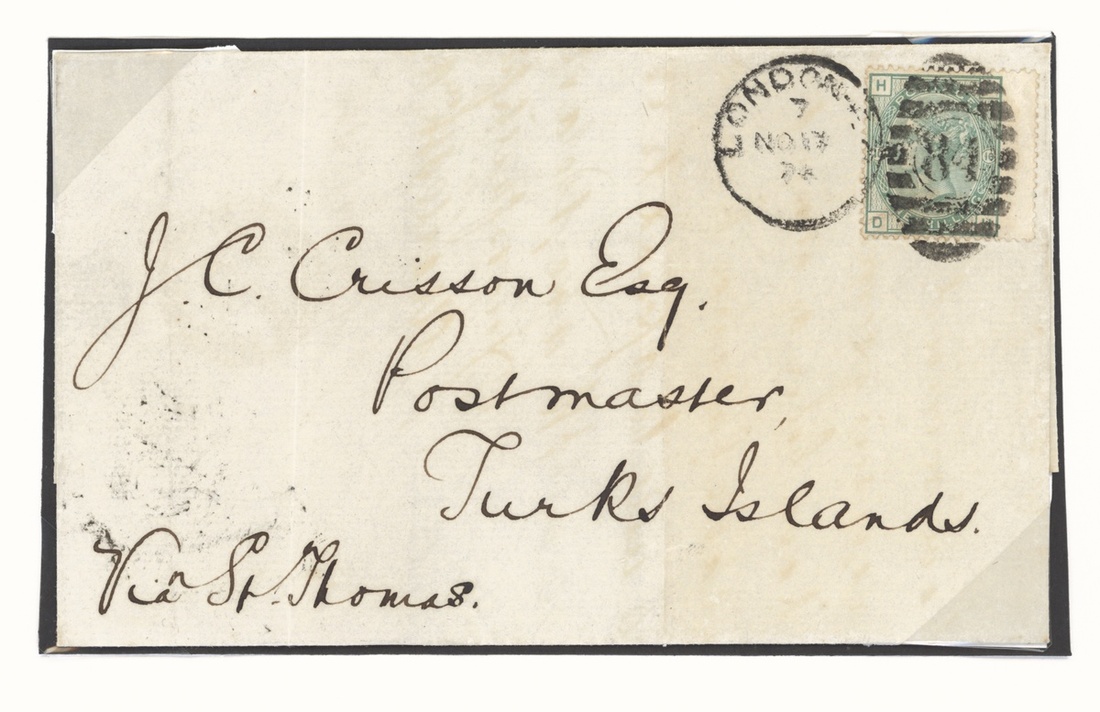 LONDON
7
NO 17
74
H
84
D
J. C. Crisson Esq.
Postmaster,
Turks Islands.
Via St. Thomas.